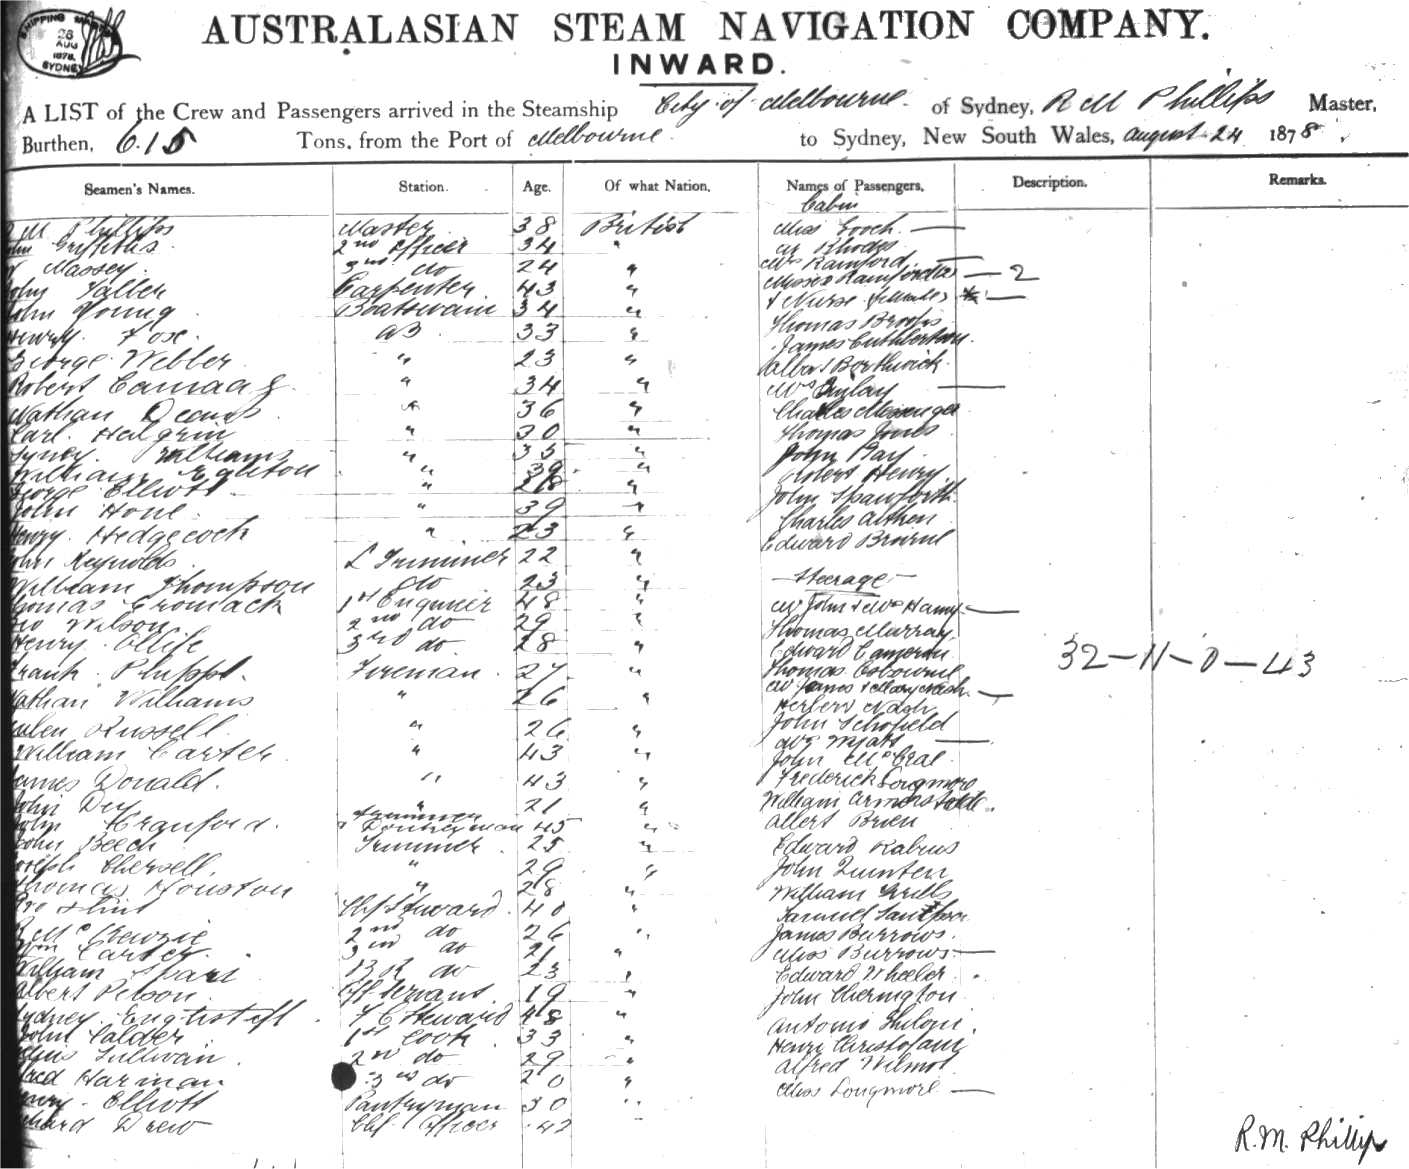 SHIPPING MASTER
26 AUG 1878
SYDNEY
AUSTRALASIAN STEAM NAVIGATION COMPANY.
INWARD.
A LIST of the Crew and Passengers arrived in the Steamship City of Melbourne of Sydney, R M Phillips Master,
Burthen, 615 Tons, from the Port of Melbourne to Sydney, New South Wales, august 24 1878
Seamen's Names. Station. Age. Of what Nation. Names of Passengers. Description. Remarks.
Cabin
M Phillips Master 38 British Miss Gooch —
John Griffiths 2nd Officer 34 " Mr Rhodes
W Massey 3rd do 24 " Mrs Rainford —
John Carpenter 43 " Misses Rainford — 2
John Young Boatswain 34 " & Nurse —
Henry Fox AB 33 " Thomas
George Webber " 23 " James Cuthbertson
Robert " 34 " Albert Borthwick
Nathan " 36 " Mrs Finlay —
Carl " 30 " Charles Messenger
Sydney Williams " 33 " Thomas Jones
William Egleton " 39 " John Hay
George Elliott " 28 " Robert Henry
John Hone " 39 " John Spawforth
Henry Hedgecock " 23 " Charles Aitken
John Reynolds L Trimmer 22 " Edward Browne
William Thompson do 23 "
— Steerage —
Thomas Cromack 1st Engineer 48 " Mr John & Mrs —
Geo Wilson 2nd do 29 " Thomas Murray
Henry Ollife 3rd do 28 " Edward Cameron
Frank Fireman 27 " Thomas Osbourne
32 — 11 — 0 — 43
Nathan Williams " 26 " Mr James & Mary Nash —
Russell " 26 " Herbert Nash
William Carter " 43 " John Schofield
James Donald " 43 " Mrs Wyatt —
John Dey " 21 " John McCrae
John Cranford Trimmer & Donkeyman 45 " Frederick Longmore
John Beech Trimmer 25 " William
Joseph " 29 " Albert Brien
Thomas Houston " 28 " Edward
Geo Flint Chf Steward 40 " John Quinten
R Mc 2nd do 26 " William
Wm Carter 3rd do 21 " Samuel
William do 23 " James Burrows
Albert Pilson Servant 19 " Miss Burrows —
Sydney F C Steward 48 " Edward Wheeler
John Calder 1st Cook 33 " John Cherington
Sullivan 2nd do 29 " Antonio
Alfred Harman 3rd do 20 " Henry
Henry Elliott Pantryman 30 " Alfred Wilmot
Richard Drew Chf Officer 42 Miss Longmore —
R.M. Phillips